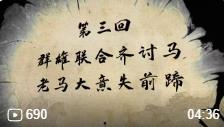 第三回
群雄联合齐讨马
老马大意失前蹄
690
04:36